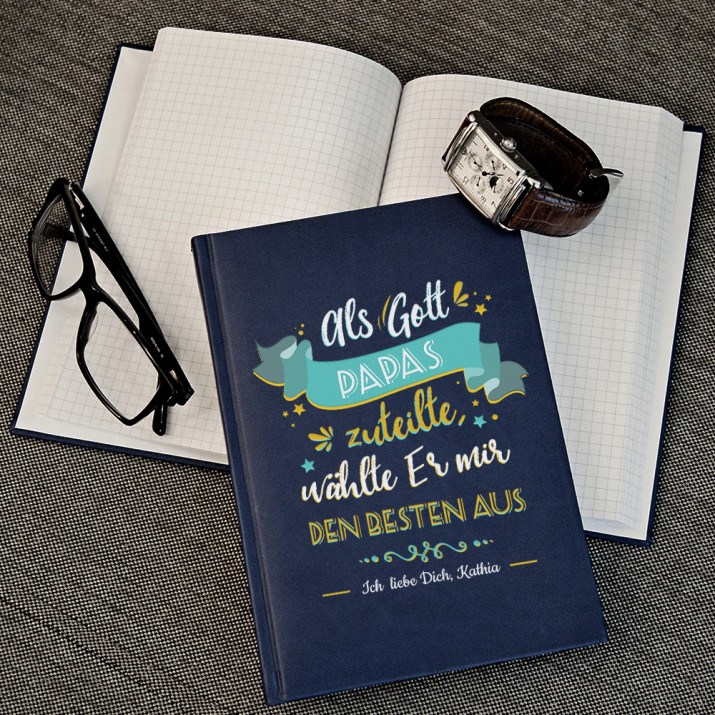 Als Gott
PAPAS
zuteilte,
wählte Er mir
DEN BESTEN AUS
Ich liebe Dich, Kathia